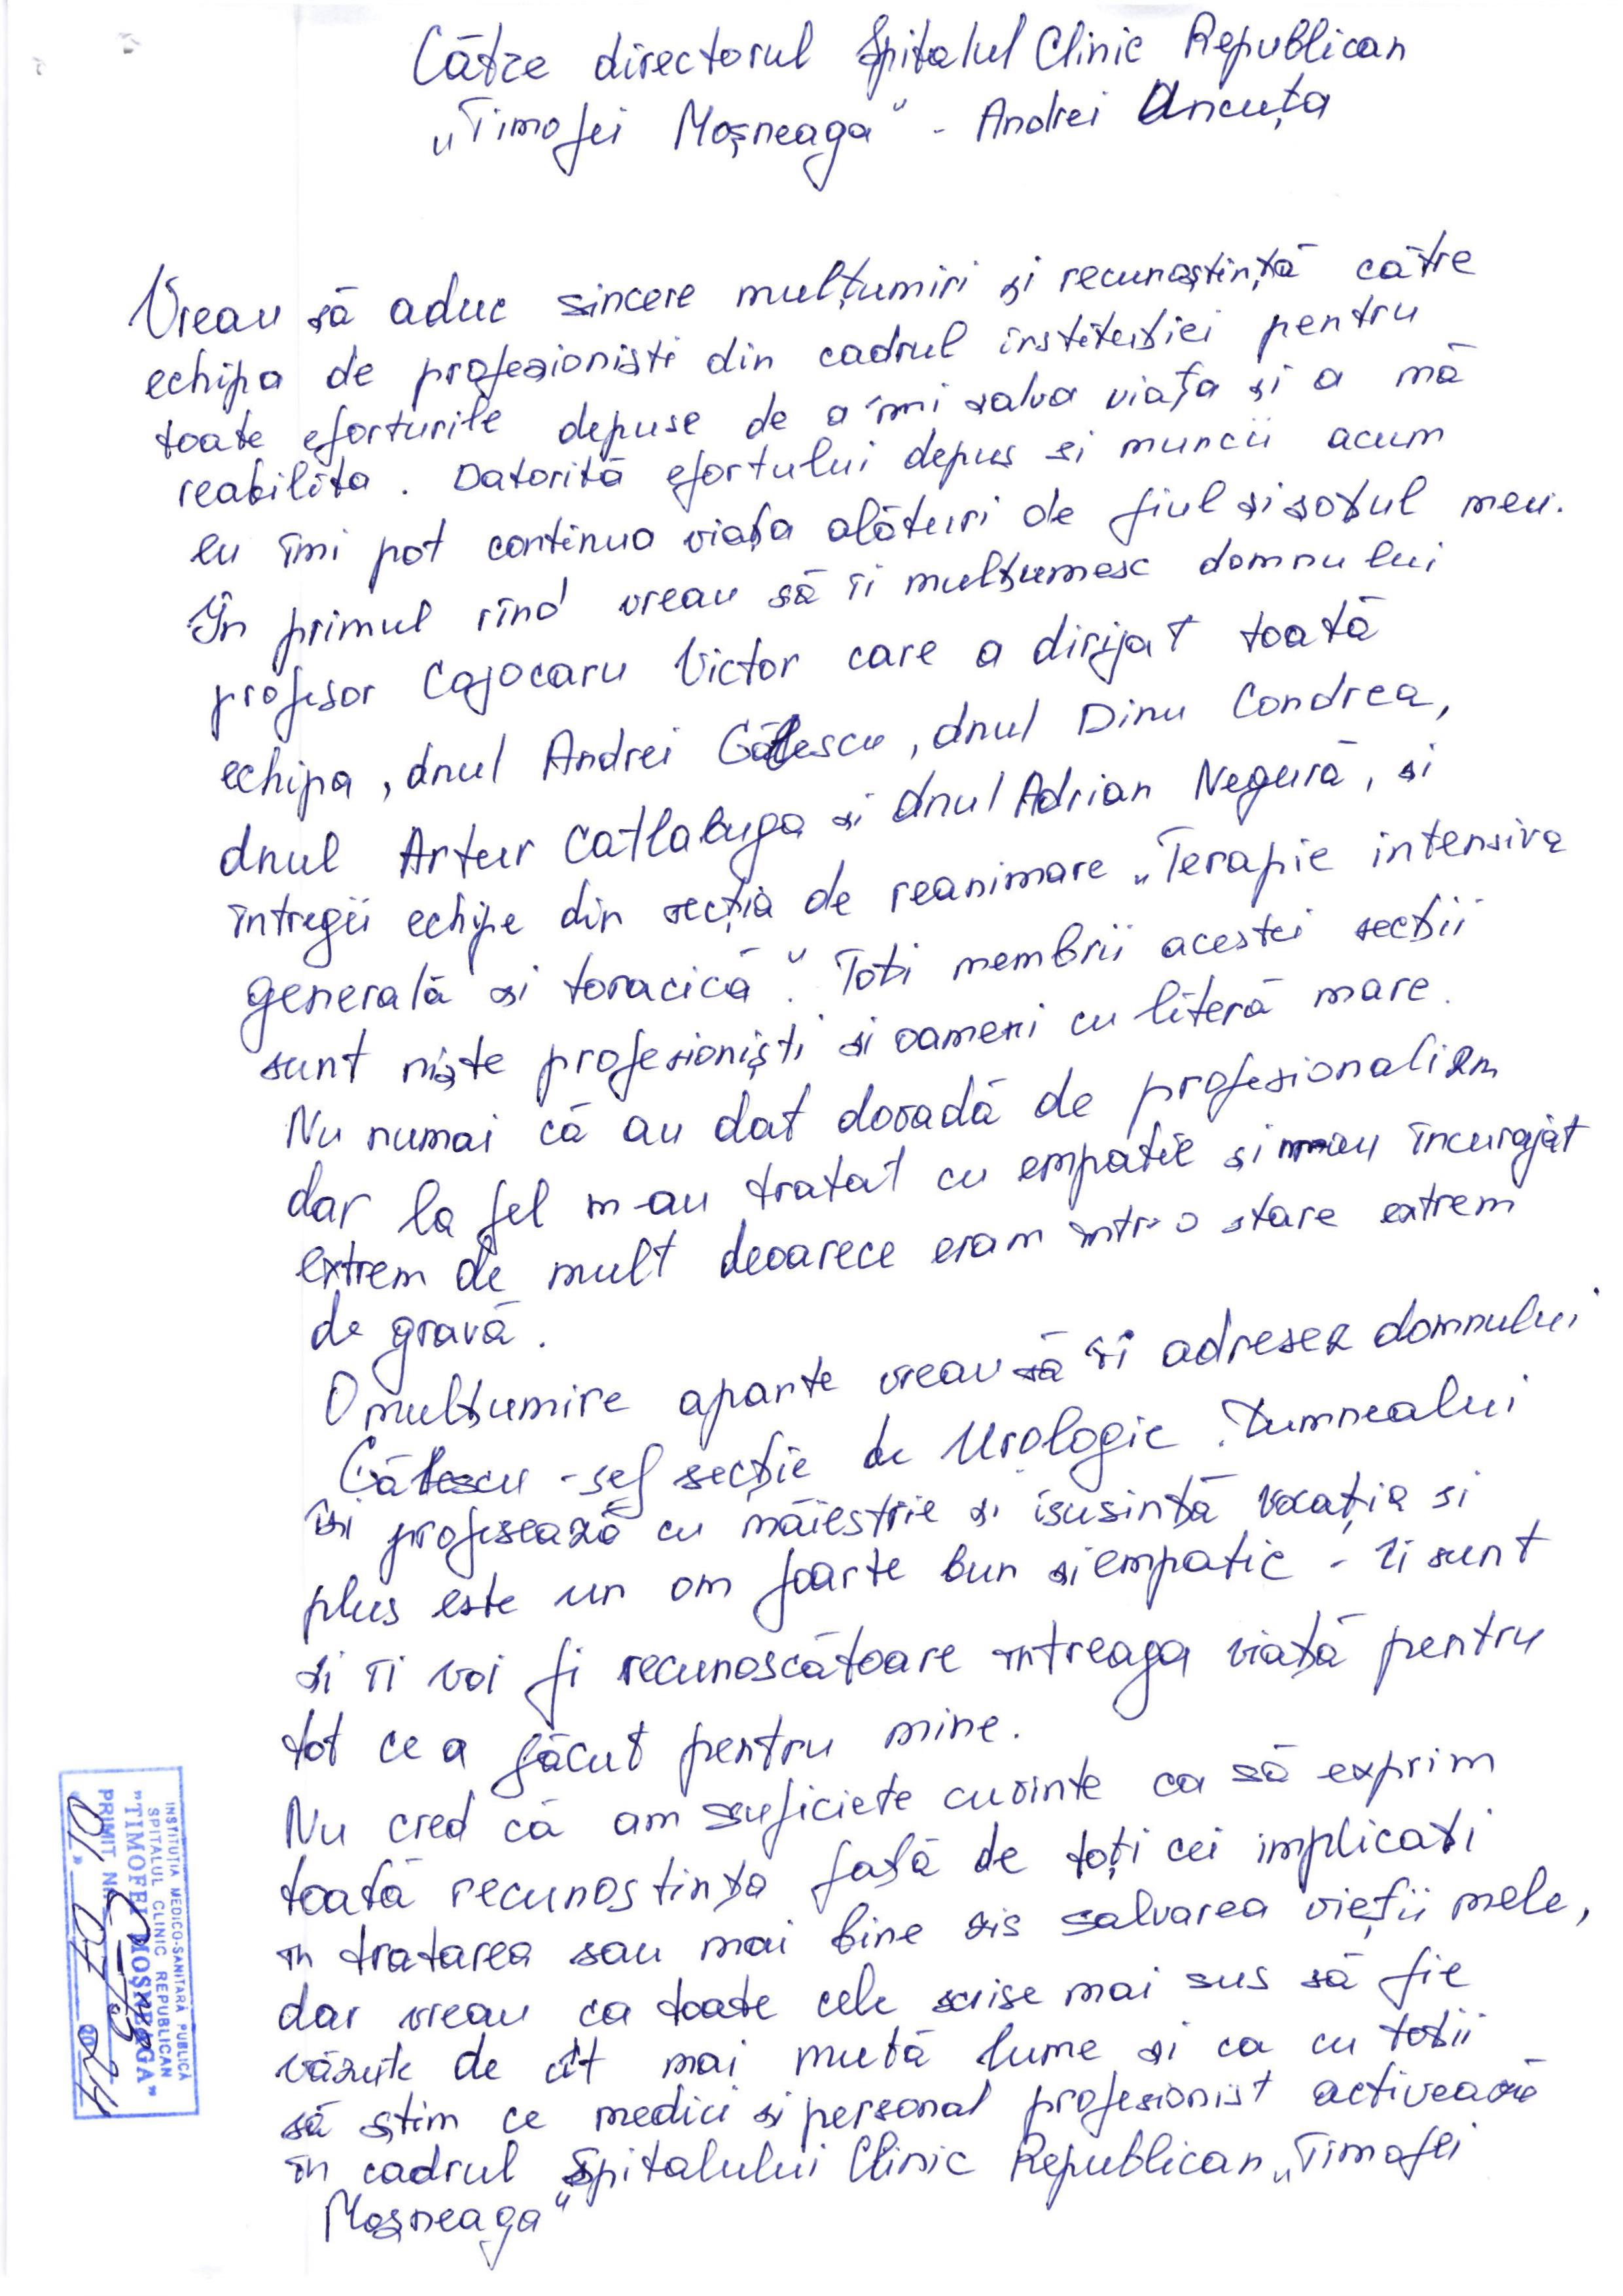 Către directorul Spitalul Clinic Republican
„Timofei Moșneaga" - Andrei Uncuța
Vreau să aduc sincere mulțumiri și recunoștință către
echipa de profesioniști din cadrul instituției pentru
toate eforturile depuse de a îmi salva viața și a mă
reabilita. Datorită efortului depus si muncii acum
eu îmi pot continua viața alături de fiul și soțul meu.
În primul rînd vreau să îi mulțumesc domnului
profesor Cojocaru Victor care a dirijat toată
echipa, dnul Andrei Gălescu, dnul Dinu Condrea,
dnul Artur Catlabuga si dnul Adrian Negură, si
întregii echipe din secția de reanimare „Terapie intensiva
generală si toracică". Toți membrii acestei secții
sunt niște profesioniști si oameni cu literă mare.
Nu numai că au dat dovadă de profesionalizm
dar la fel m-au tratat cu empatie si m-au încurajat
extrem de mult deoarece eram într-o stare extrem
de gravă.
O mulțumire aparte vreau să îi adresez domnului
Gălescu - șef secție de Urologie. Dumnealui
își profesează cu măiestrie si isusință vocația si
plus este un om foarte bun si empatic - îi sunt
si îi voi fi recunoscătoare întreaga viață pentru
tot ce a făcut pentru mine.
Nu cred că am suficiete cuvinte ca să exprim
toată recunostința față de toți cei implicați
în tratarea sau mai bine zis salvarea vieții mele,
dar vreau ca toate cele scrise mai sus să fie
văzute de cît mai mută lume si ca cu toții
să știm ce medici si personal profesionist activează
în cadrul Spitalului Clinic Republican „Timofei
Moșneaga"
INSTITUȚIA MEDICO-SANITARĂ PUBLICĂ
SPITALUL CLINIC REPUBLICAN
"TIMOFEI MOȘNEAGA"
PRIMIT NR.
"01" 07 20 24